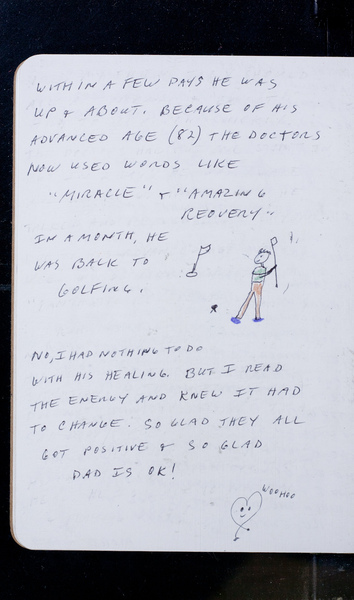 WITHIN A FEW DAYS HE WAS
UP & ABOUT. BECAUSE OF HIS
ADVANCED AGE (82) THE DOCTORS
NOW USED WORDS LIKE
"MIRACLE" & "AMAZING
REOVERY".
IN A MONTH, HE
WAS BACK TO
GOLFING.
NO, I HAD NOTHING TO DO
WITH HIS HEALING. BUT I READ
THE ENERGY AND KNEW IT HAD
TO CHANGE. SO GLAD THEY ALL
GOT POSITIVE & SO GLAD
DAD IS OK!
WOOHOO